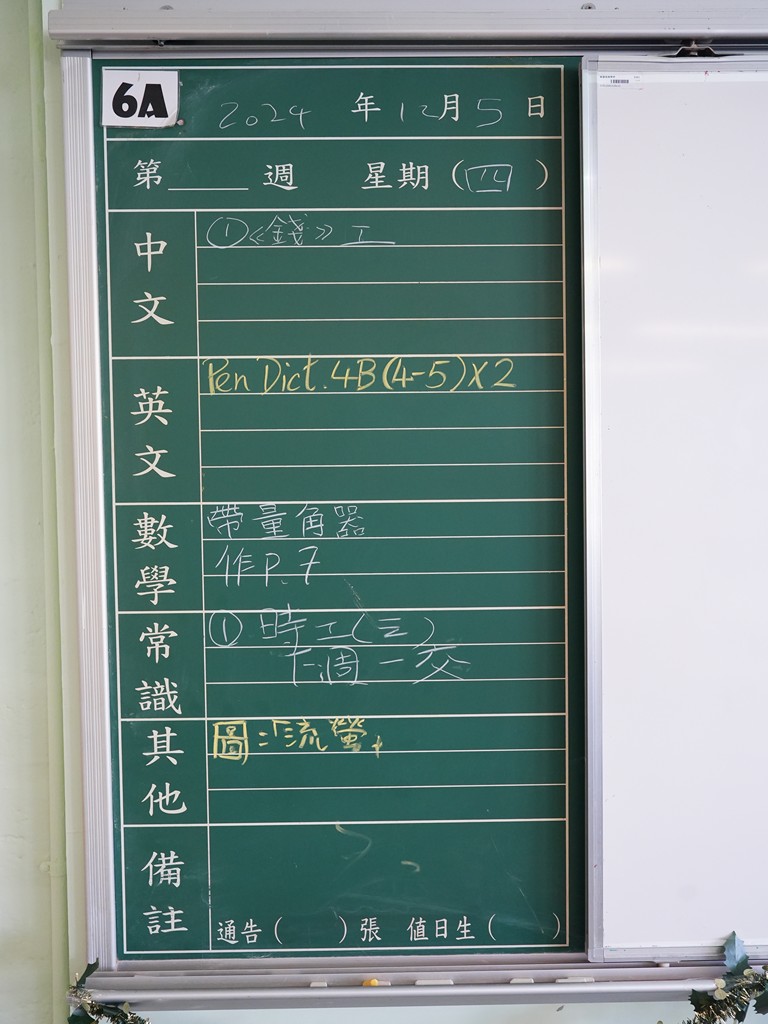 6A
2024 年 12 月 5 日
第 週 星期 (四)
中文
①《錢》工
英文
Pen Dict. 4B (4-5) X 2
數學
帶量角器
作P. 7
常識
① 時工(三)
下週一交
其他
圖:「流螢」
備註
通告( )張 值日生( )